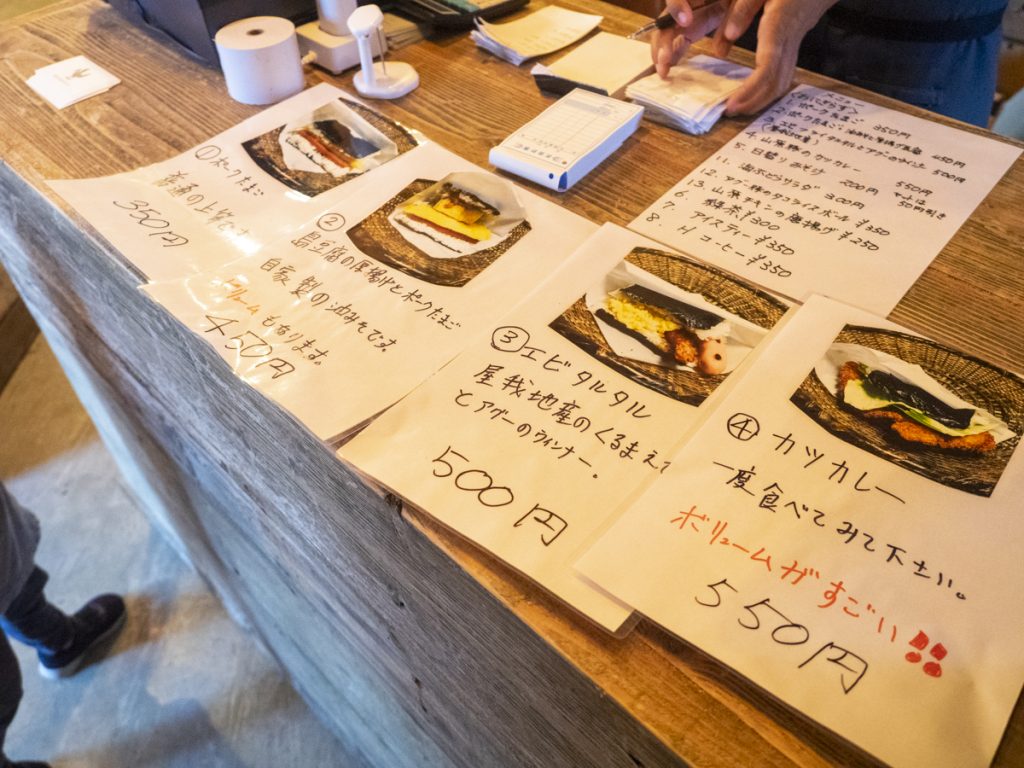 ①ポークたまご
普通の上等です
350円
②
島豆腐の厚揚げとポークたまご
自家製の油みそです。
ボリュームもあります。
450円
③エビタルタル
屋我地産のくるまえ
とアグーのウィンナー。
500円
④カツカレー
一度食べてみて下さい。
ボリュームがすごい!!
550円
メニュー
1.ポークたまご 350円
450円
500円
4.山原豚のカツカレー 550円
5.日替りみそ汁 200円
50円引き
11.海ぶどうサラダ 300円
¥350
¥250
¥300
7.アイスティー ¥350
8.Hコーヒー ¥350